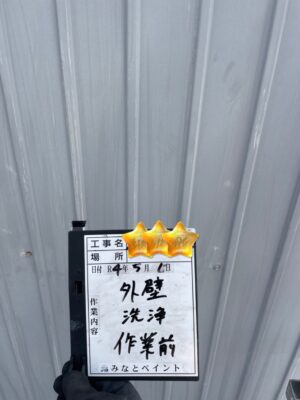 工事名
場所
日付 R4年5月6日
作業内容
外壁
洗浄
作業前
みなとペイント